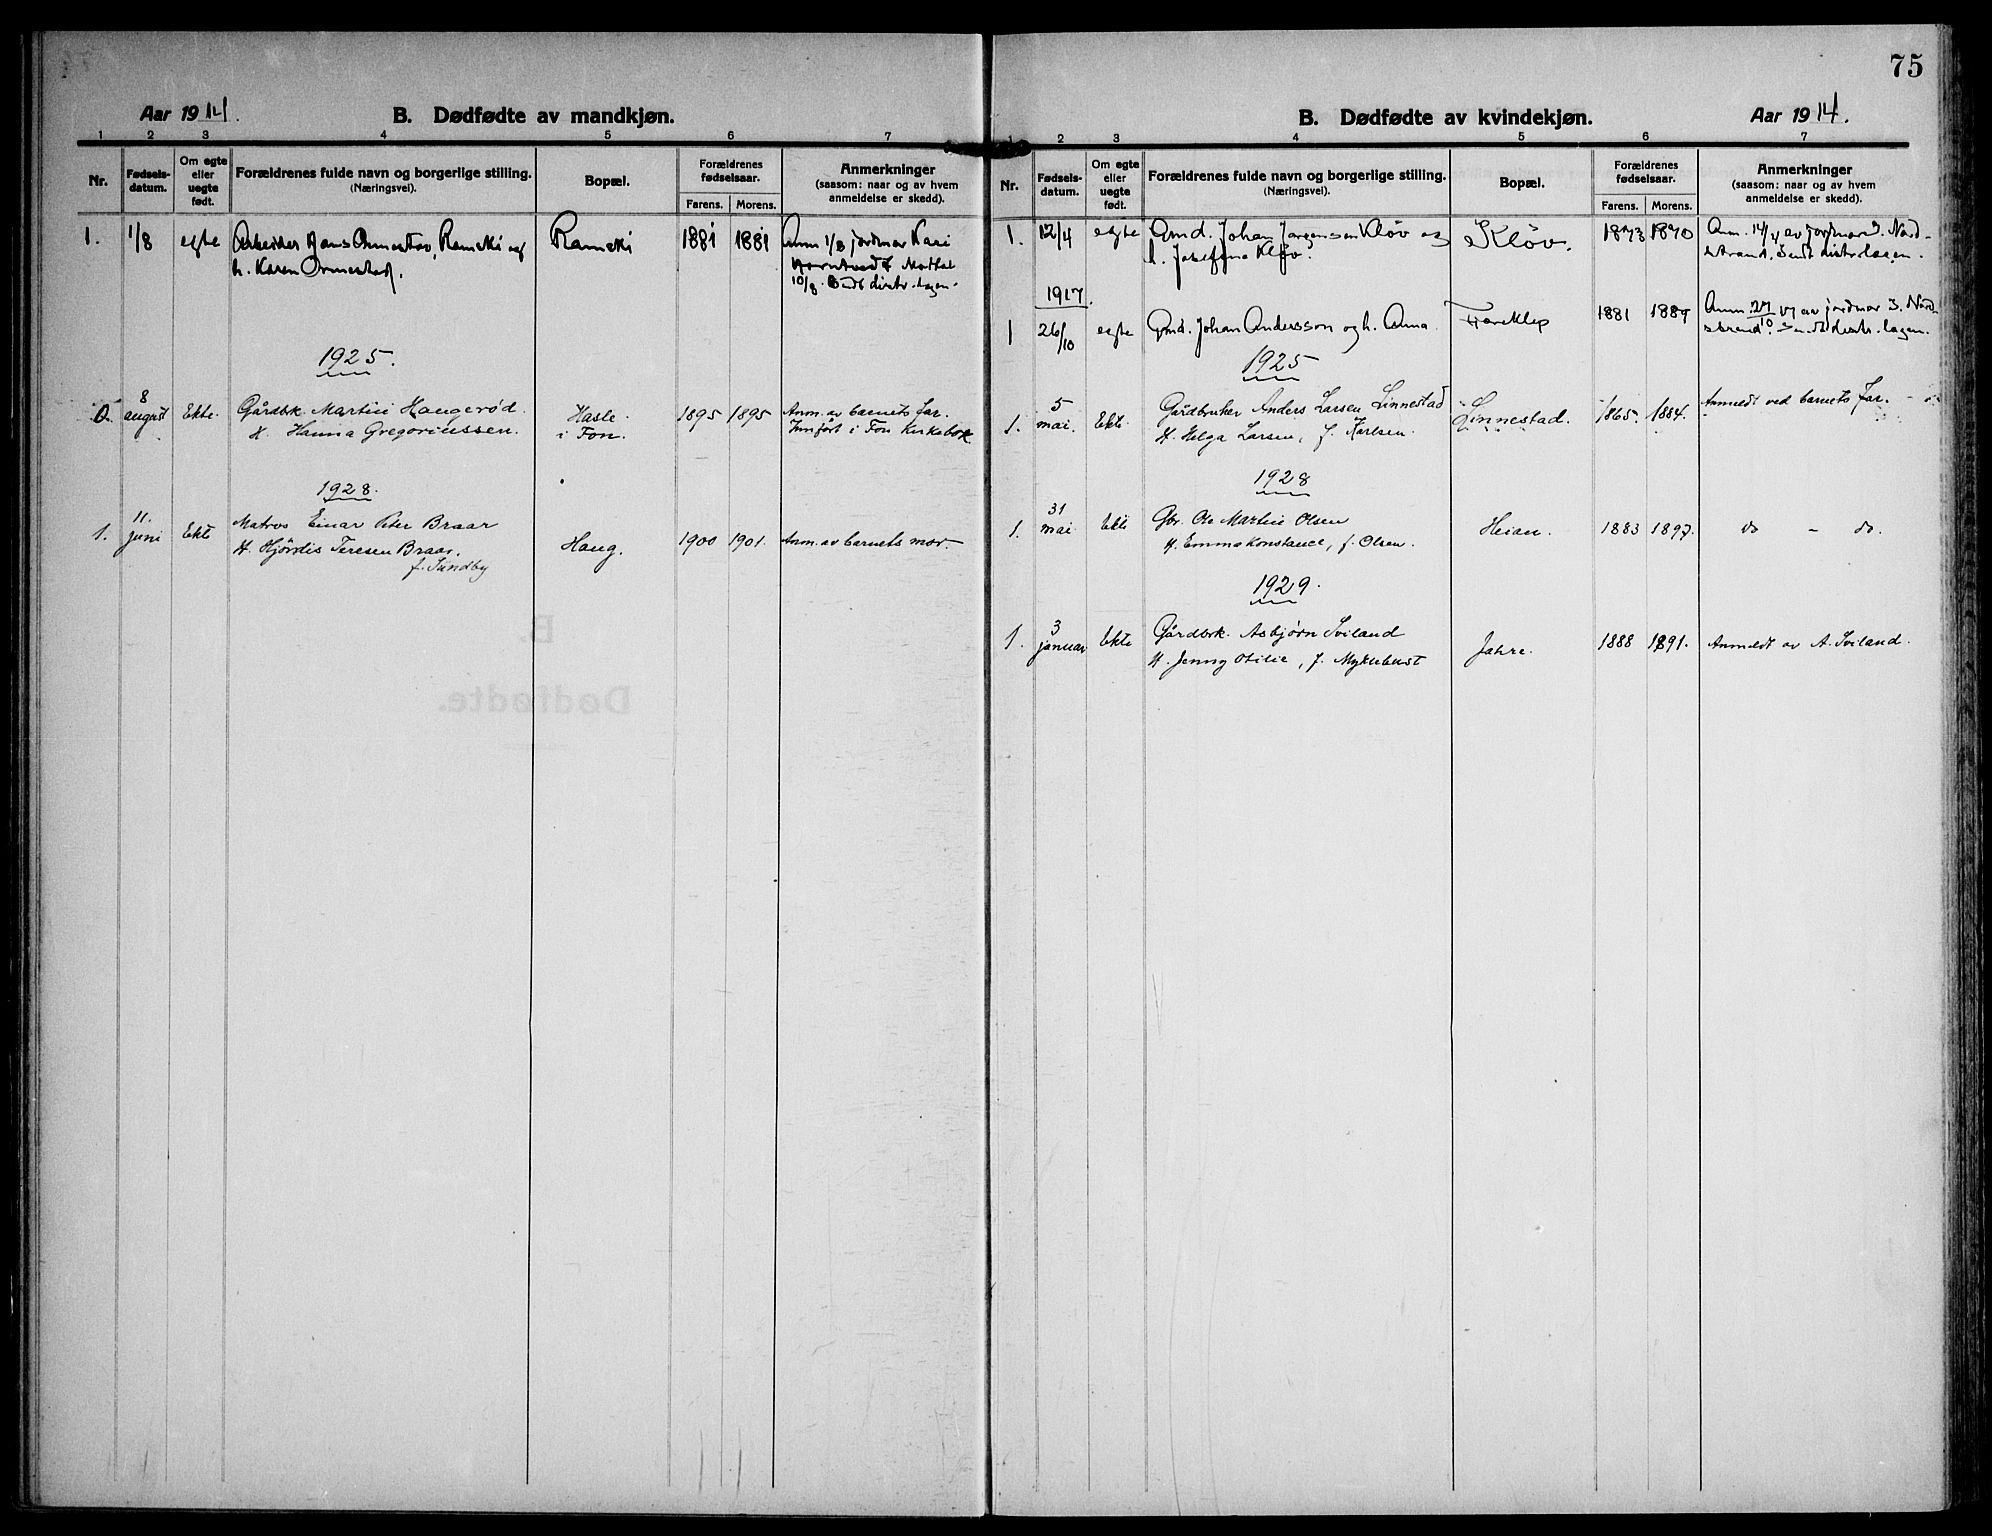 75
Aar 1914.
B. Dødfødte av mandkjøn.
1 2 3 4 5 6 7
Nr.
Fødsels-
datum.
Om egte
eller
uegte
født.
Forældrenes fulde navn og borgerlige stilling.
(Næringsvei).
Bopæl.
Forældrenes
fødselsaar.
Farens. Morens.
Anmerkninger
(saasom: naar og av hvem
anmeldelse er skedd).
1. 1/8 egte Arbeider Hans Ormestad, Rameki og Rameki 1881 1881 Anm 1/8 jordmor Kari
h. Karen Ormestad.
10/8. Sendt distr. lægen.
1925.
8
august Ekte. Gårdbr. Martin Haugerød Hasle 1895 1895 Anm. av barnets far.
H. Hanna Gregoriussen. i Fon. Innført i Fon Kirkebok
1928.
11.
1. juni Ekte Matros Einar Peter Braar Haug. 1900 1901. Anm. av barnets mor.
H. Hjørdis Teresen Braar.
f. Sundby
B.
Dødfødte.
B. Dødfødte av kvindekjøn.
Aar 1914.
1 2 3 4 5 6 7
Nr.
Fødsels-
datum.
Om egte
eller
uegte
født.
Forældrenes fulde navn og borgerlige stilling.
(Næringsvei).
Bopæl.
Forældrenes
fødselsaar.
Farens. Morens.
Anmerkninger
(saasom: naar og av hvem
anmeldelse er skedd).
1. 12/4 egte Gmd. Johan Jørgensen Kløv og Kløv. 1873 1870 Anm. 14/4 av jordmor J. Nord-
h. Josefine Kløv. strand. Sendt distr. lægen.
1917.
1 26/10 egte Gmd. Johan Andersson og h. Anna. 1881 1889 Anm. 27/10 17 av jordmor J. Nord-
strand. Sendt distr. lægen.
1925
5
1. mai. Ekte. Gårdbruker Anders Larsen Linnestad Linnestad. 1865. 1884. Anmeldt ved barnets far.
H. Helga Larsen, f. Karlsen.
1928
31
1. mai Ekte Gbr. Ole Martin Olsen Heian. 1883 1897. do - do.
H. Emma Konstance, f. Olsen.
1929.
3
1. januar Ekte Gårdbrk. Asbjørn Sviland Jahre. 1888 1891. Anmeldt av A. Sviland.
H. Jenny Otilie, f. Myklebust